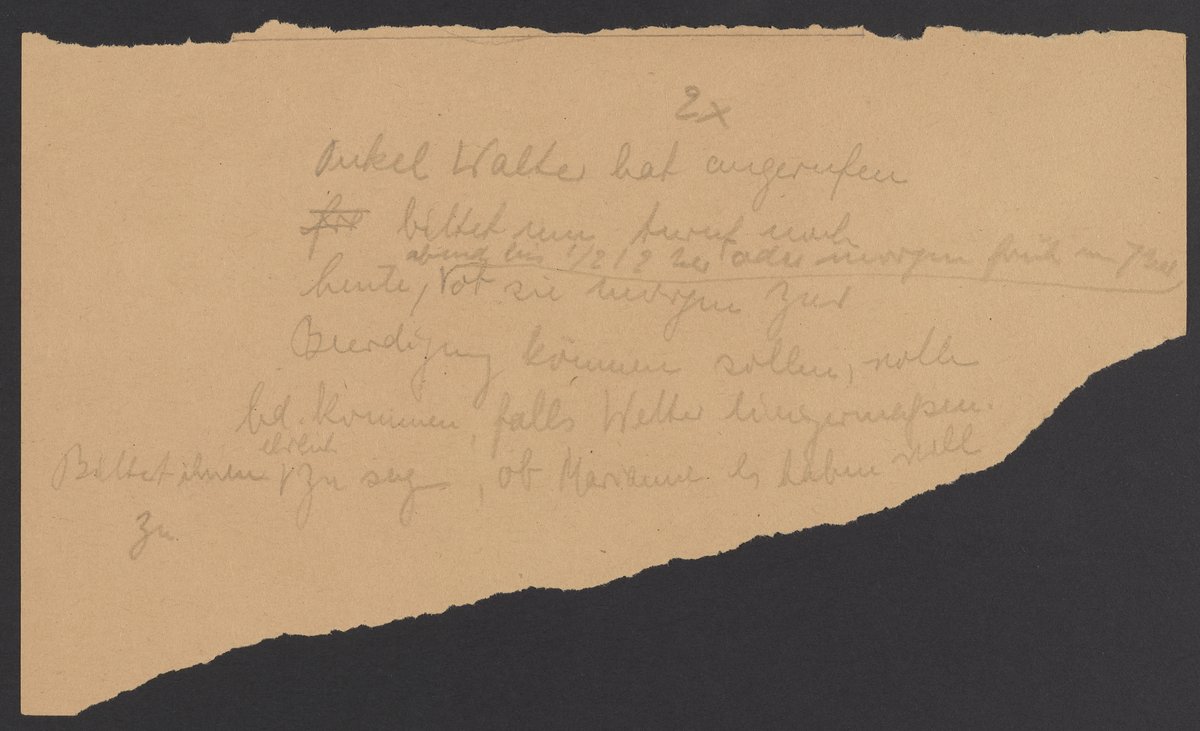 2x
Onkel Walter hat angerufen
bittet um Anruf noch
abend bis 1/2 12 Uhr oder morgen früh um 7 Uhr
heute, ob sie morgen zur
Beerdigung kommen sollen, wolle
bd. kommen, falls Wetter einigermaßen.
Bittet ihnen ehrlich zu sag, ob Marianne es haben will
zu